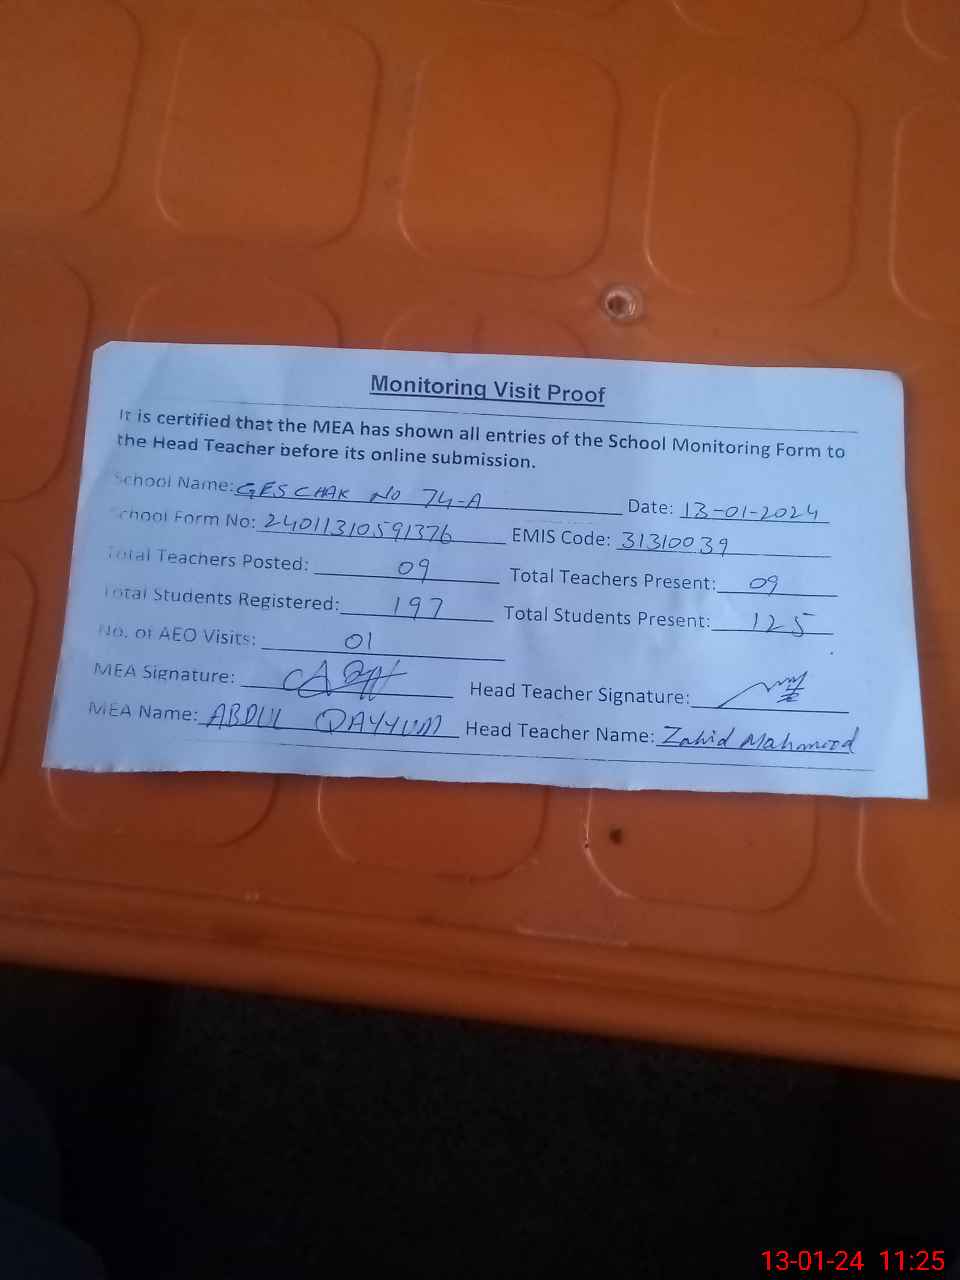 Monitoring Visit Proof
It is certified that the MEA has shown all entries of the School Monitoring Form to
the Head Teacher before its online submission.
School Name: GES CHAK No 74-A Date: 13-01-2024
School Form No: 24011310591376 EMIS Code: 31310039
Total Teachers Posted: 09 Total Teachers Present: 09
Total Students Registered: 197 Total Students Present: 125
No. of AEO Visits: 01
MEA Signature: Head Teacher Signature:
MEA Name: ABDUL QAYYUM Head Teacher Name: Zahid Mahmood
13-01-24 11:25